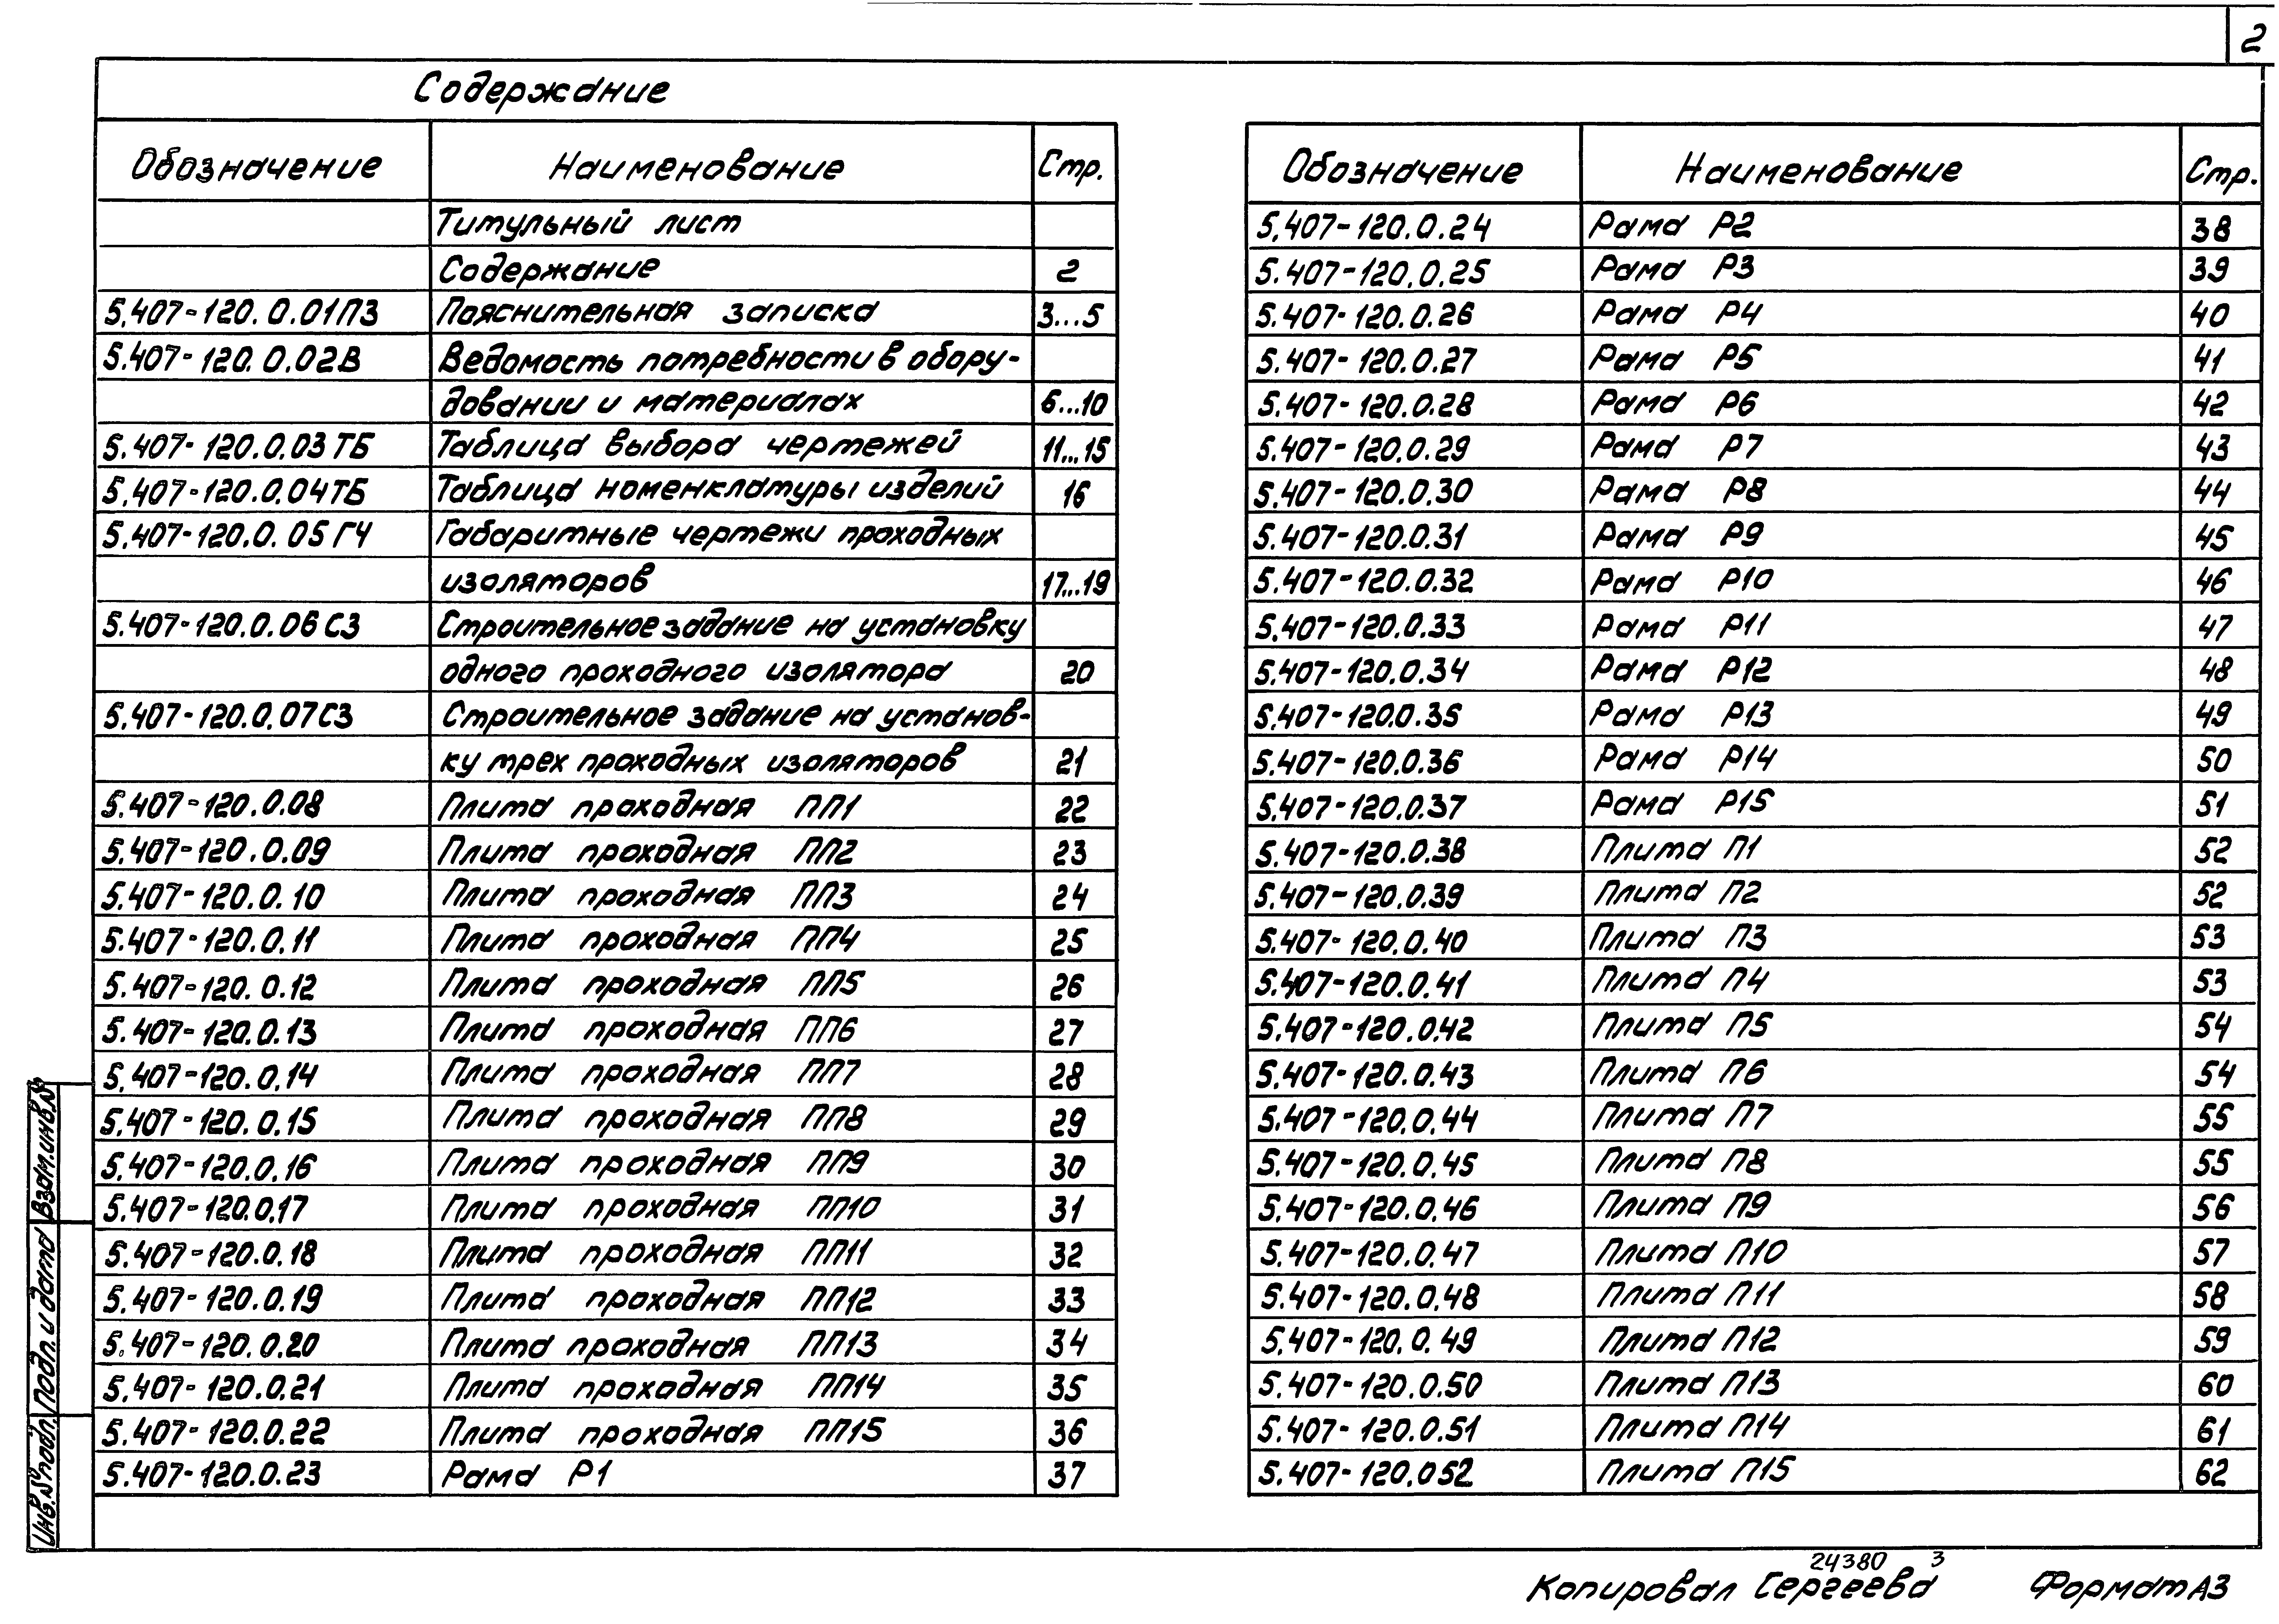 2
Содержание
Обозначение Наименование Стр.
Титульный лист
Содержание 2
5.407-120.0.01ПЗ Пояснительная записка 3...5
5.407-120.0.02В Ведомость потребности в обору-
довании и материалах 6...10
5.407-120.0.03ТБ Таблица выбора чертежей 11...15
5.407-120.0.04ТБ Таблица номенклатуры изделий 16
5.407-120.0.05ГЧ Габаритные чертежи проходных
изоляторов 17...19
5.407-120.0.06СЗ Строительное задание на установку
одного проходного изолятора 20
5.407-120.0.07СЗ Строительное задание на установ-
ку трех проходных изоляторов 21
5.407-120.0.08 Плита проходная ПП1 22
5.407-120.0.09 Плита проходная ПП2 23
5.407-120.0.10 Плита проходная ПП3 24
5.407-120.0.11 Плита проходная ПП4 25
5.407-120.0.12 Плита проходная ПП5 26
5.407-120.0.13 Плита проходная ПП6 27
5.407-120.0.14 Плита проходная ПП7 28
5.407-120.0.15 Плита проходная ПП8 29
5.407-120.0.16 Плита проходная ПП9 30
5.407-120.0.17 Плита проходная ПП10 31
5.407-120.0.18 Плита проходная ПП11 32
5.407-120.0.19 Плита проходная ПП12 33
5.407-120.0.20 Плита проходная ПП13 34
5.407-120.0.21 Плита проходная ПП14 35
5.407-120.0.22 Плита проходная ПП15 36
5.407-120.0.23 Рама Р1 37
Обозначение Наименование Стр.
5.407-120.0.24 Рама Р2 38
5.407-120.0.25 Рама Р3 39
5.407-120.0.26 Рама Р4 40
5.407-120.0.27 Рама Р5 41
5.407-120.0.28 Рама Р6 42
5.407-120.0.29 Рама Р7 43
5.407-120.0.30 Рама Р8 44
5.407-120.0.31 Рама Р9 45
5.407-120.0.32 Рама Р10 46
5.407-120.0.33 Рама Р11 47
5.407-120.0.34 Рама Р12 48
5.407-120.0.35 Рама Р13 49
5.407-120.0.36 Рама Р14 50
5.407-120.0.37 Рама Р15 51
5.407-120.0.38 Плита П1 52
5.407-120.0.39 Плита П2 52
5.407-120.0.40 Плита П3 53
5.407-120.0.41 Плита П4 53
5.407-120.0.42 Плита П5 54
5.407-120.0.43 Плита П6 54
5.407-120.0.44 Плита П7 55
5.407-120.0.45 Плита П8 55
5.407-120.0.46 Плита П9 56
5.407-120.0.47 Плита П10 57
5.407-120.0.48 Плита П11 58
5.407-120.0.49 Плита П12 59
5.407-120.0.50 Плита П13 60
5.407-120.0.51 Плита П14 61
5.407-120.052 Плита П15 62
Взам.инв.№
Подп. и дата
Инв.№ подл.
24380 3
Копировал Сергеева Формат А3